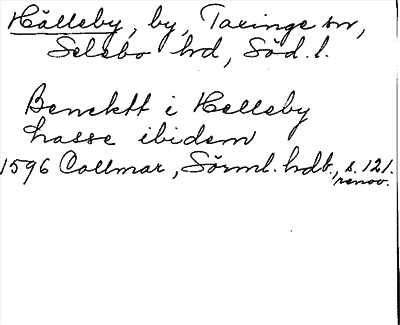 Hälleby, by, Taxinge sn,
Selebo hd, Söd. l.
Benektt i Helleby
Lasse ibidem
1596 Collmar, Sörml. hdb., s. 121.
renov.